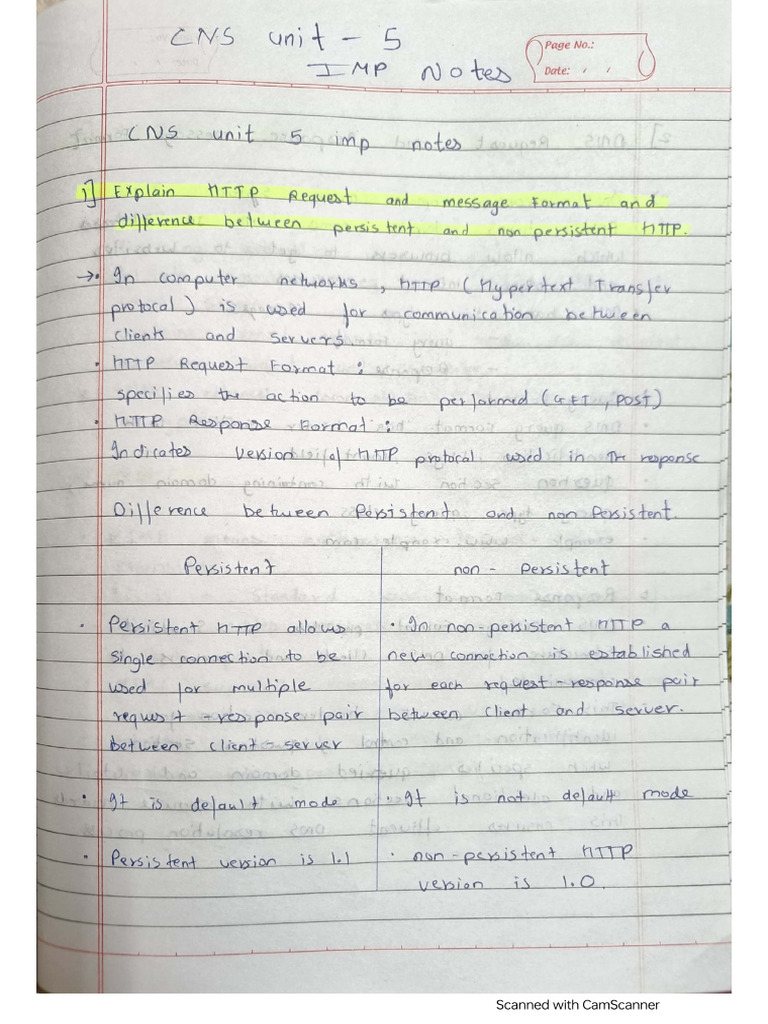 CNS unit - 5
IMP Notes
Page No.:
Date: / /
CNS unit 5 imp notes
1] Explain HTTP Request and message Format and
difference between persistent and non persistent HTTP.
→ • In computer networks, HTTP (Hypertext Transfer
protocal) is used for communication between
clients and servers.
• HTTP Request Format :
specifies the action to be performed (GET, POST)
• HTTP Response Format :
Indicates version of HTTP protocol used in the response
Difference between Persistent and non Persistent.
Persistent
non - Persistent
• Persistent HTTP allows
single connection to be
used for multiple
request - response pair
between client - server
• In non-persistent HTTP a
new connection is established
for each request - response pair
between client and server.
• It is default mode
• It is not default mode
• Persistent version is 1.1
• non-persistent HTTP
version is 1.0.
Scanned with CamScanner